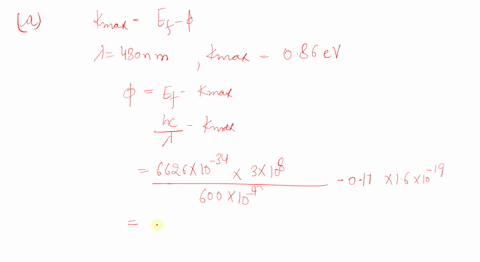 (a) Kmax - Ef - ϕ
λ = 480nm , Kmax - 0.86 eV
ϕ = Ef - Kmax
hc/λ - Kmax
= 6626 × 10^-34 × 3 × 10^8 / 600 × 10^-9 - 0.17 × 1.6 × 10^-19
=